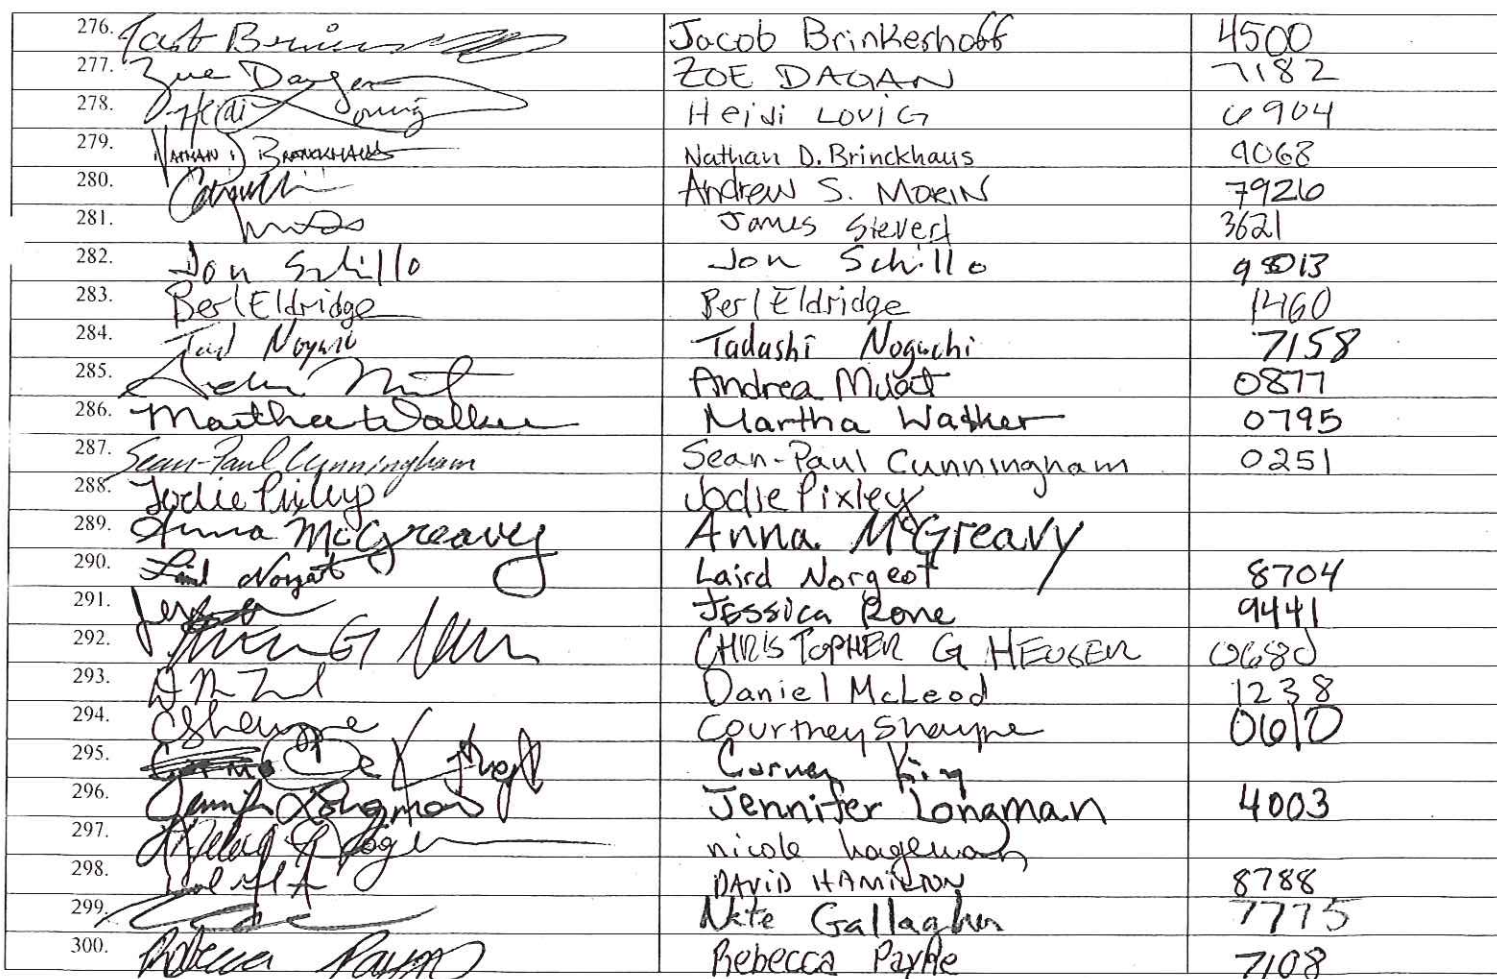 276. Jacob Brinkerhoff 4500
277. Zoe Dagan ZOE DAGAN 7182
278. Heidi Lovig Heidi LOViG 6904
279. NATHAN D BRINCKHAUS Nathan D. Brinckhaus 9068
280. Andrew S. MORIN 7926
281. James Sievert 3621
282. Jon Schillo Jon Schillo 98013
283. Berl Eldridge Berl Eldridge 1460
284. Tad Noguchi Tadashi Noguchi 7158
285. Andrea Andrea 0877
286. Martha Walker Martha Walker 0795
287. Sean-Paul Cunningham Sean-Paul Cunningham 0251
288. Jodie Pixley Jodie Pixley
289. Anna McGreavy Anna McGreavy
290. Laird Norgeot Laird Norgeot 8704
291. Jessica Rone 9441
292. CHRISTOPHER G HEUSER 0680
293. Daniel McLeod 1238
294. CShaupe Courtney Shaupe 0610
295. King
296. Jennifer Longman Jennifer Longman 4003
297. nicole hageman
298. DAVID HAMILTON 8788
299. Nate Gallagher 7775
300. Rebecca Payne Rebecca Payne 7108